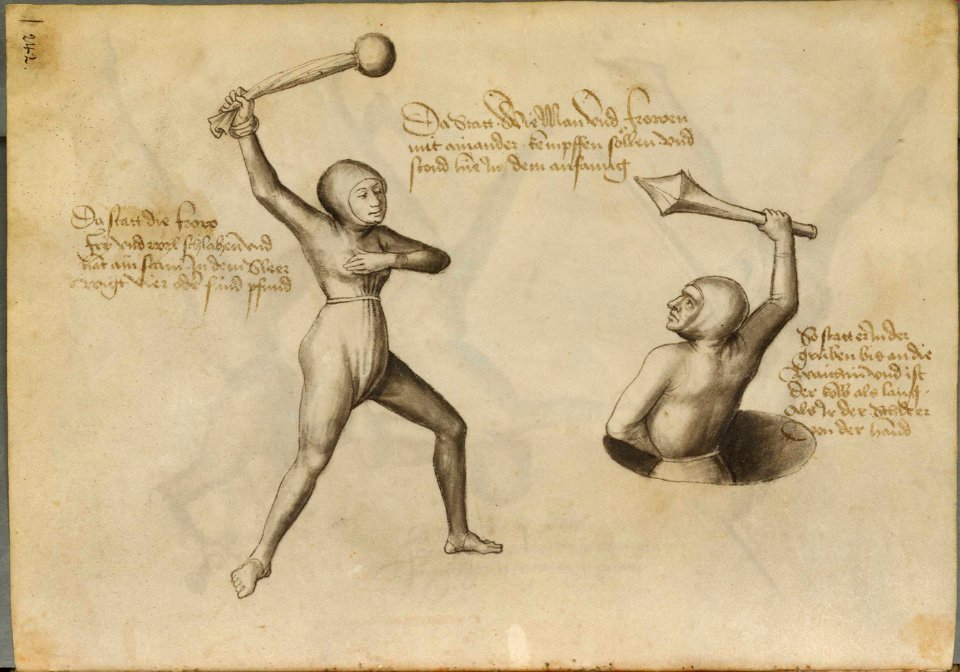 242
Da Statt Wie Man und Frowen
mit ainander kempffen söllen und
stand hie in dem anfang
Da statt die Frow
fry und wil schlahen und
hat ain stain in dem Sleer
wigt vier oder fünd pfund
So statt er in der
gruben bis an die
waichin und ist
der kolb als lang
als ir der Schleer
von der hand